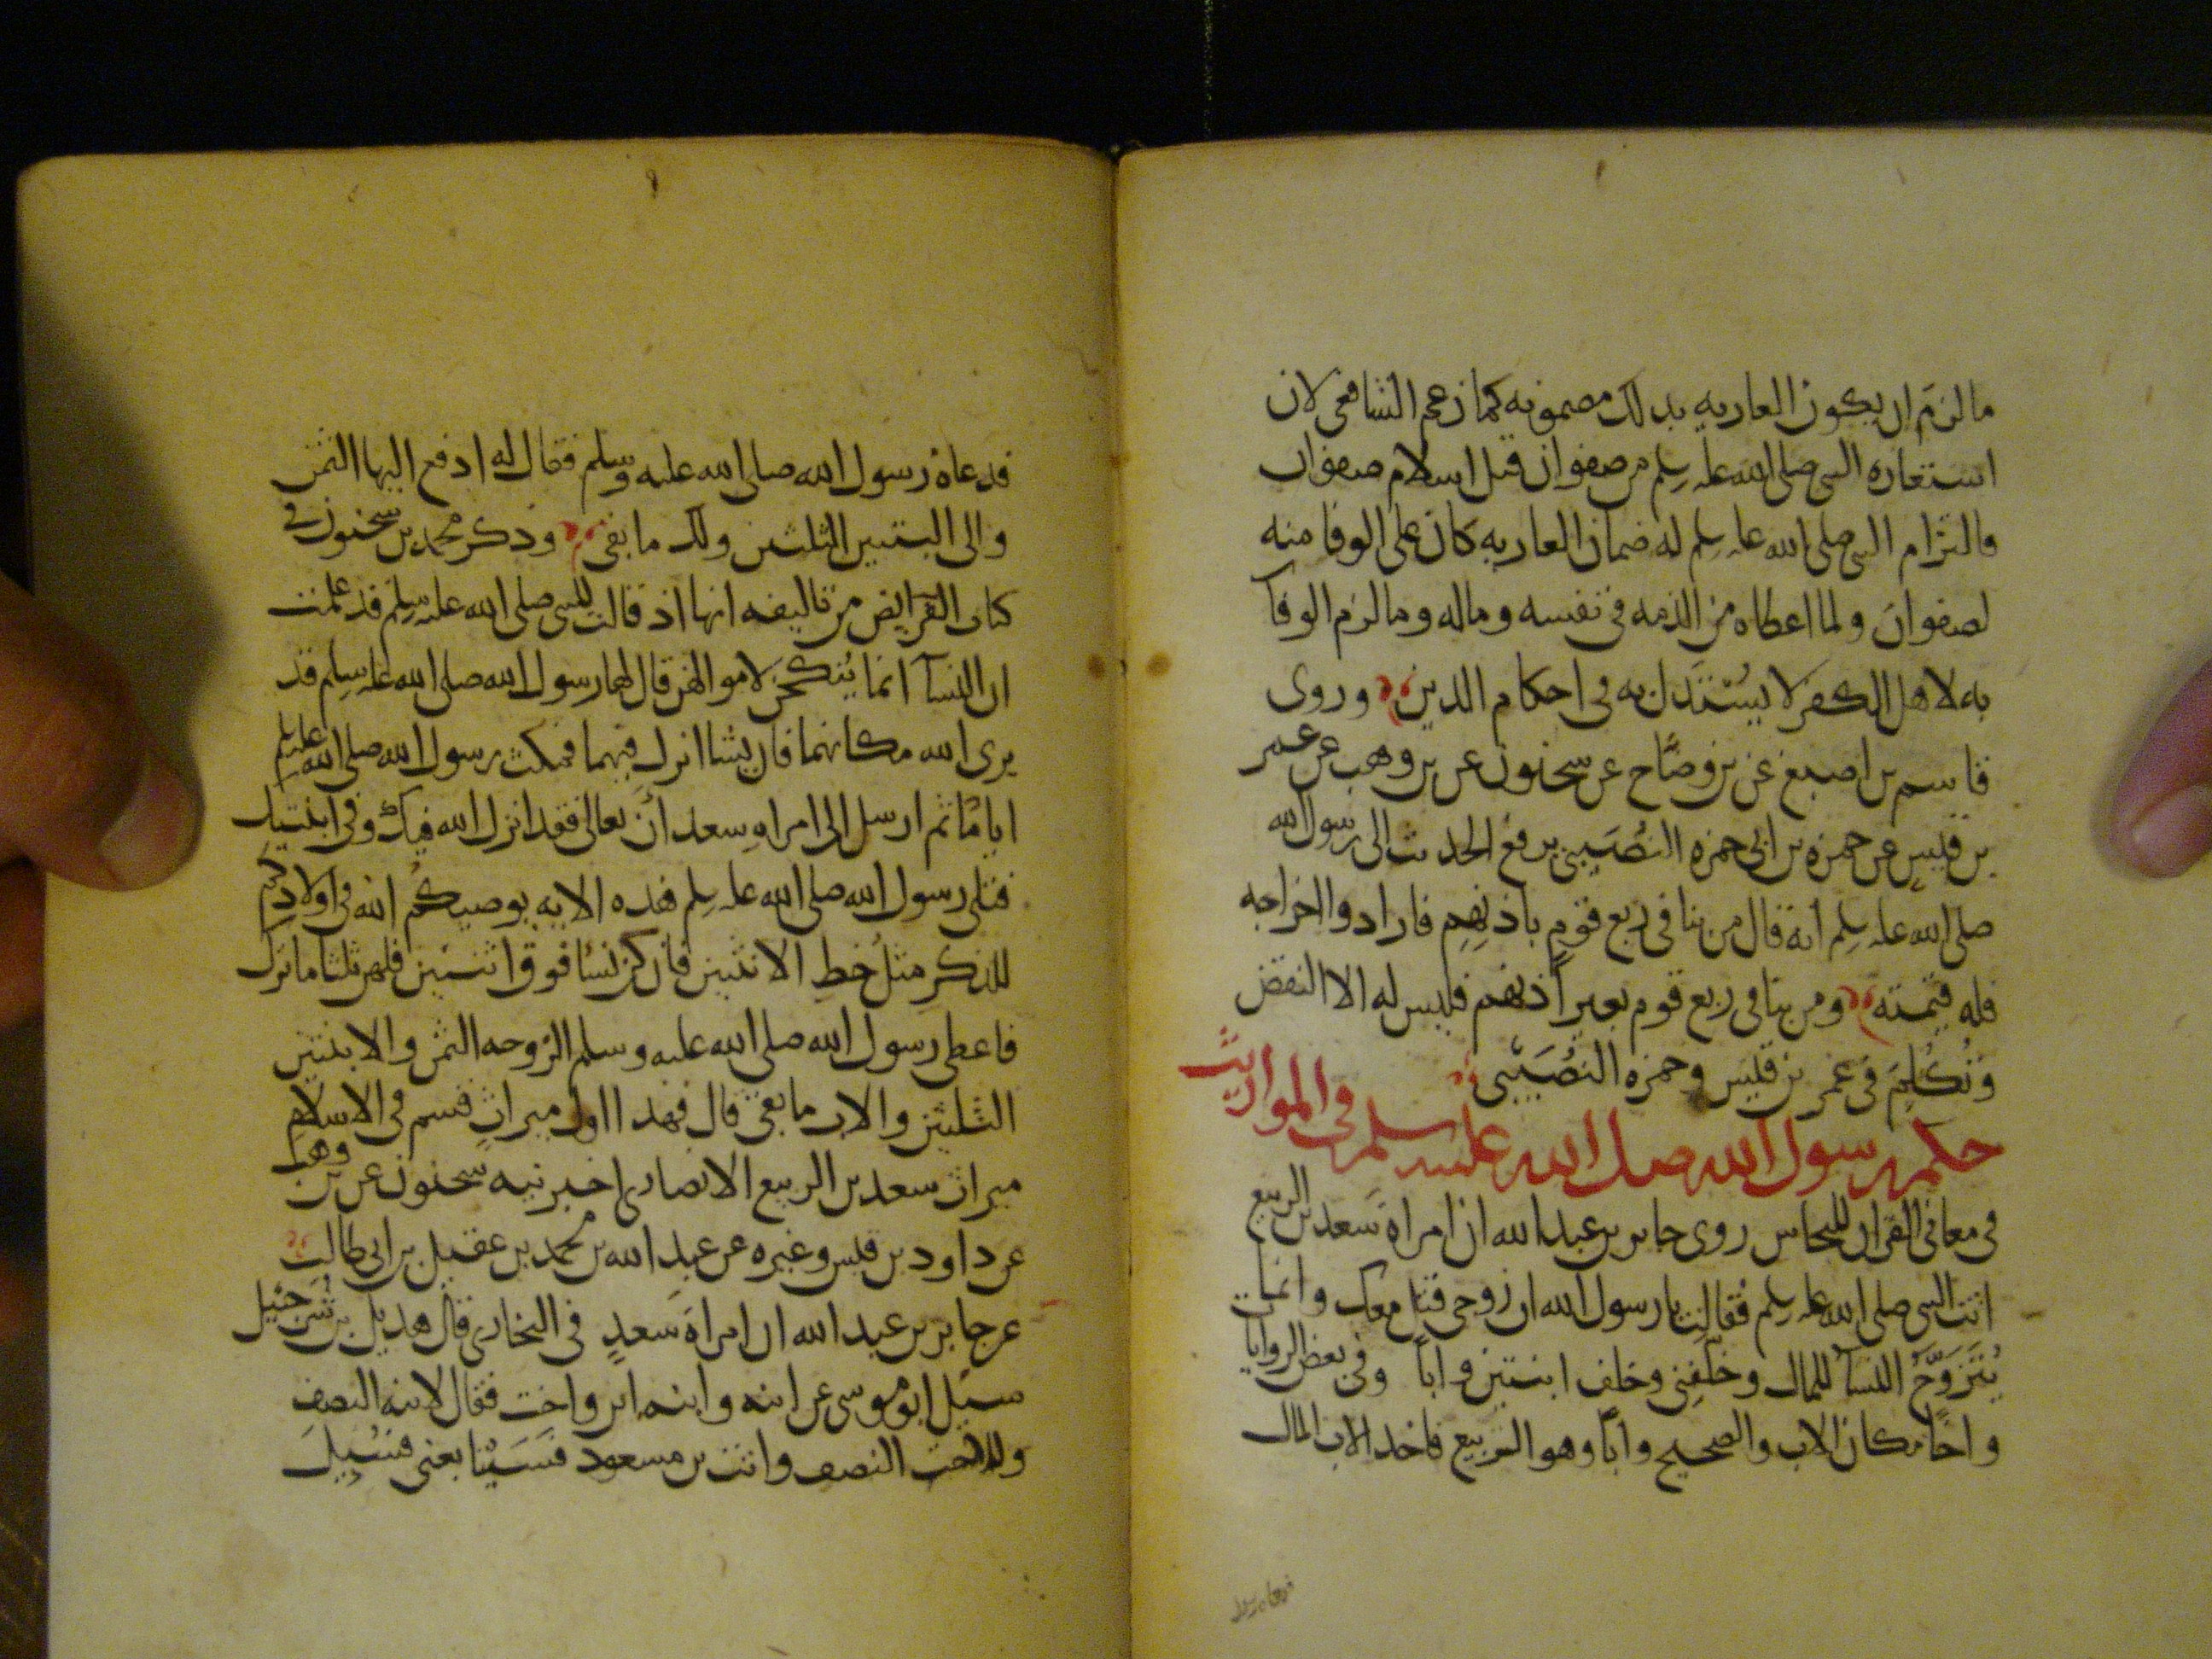 ما لزم ان يكون العاريه بدلك مضمونه كما زعم الشافعي لان
استعاره النبي صلى الله عليه وسلم من صفوان قبل اسلام صفوان
فالتزام النبي صلى الله عليه وسلم له ضمان العاريه كان على الوفا منه
لصفوان ولما اعطاه من الذمه في نفسه وماله وما لزم الوفا
به لاهل الكفر لا يستدل به في احكام الدين وروى
قاسم بن اصبغ عن بن وضاح عن سحنون عن بن وهب عن عمر
بن قيس عن حمزه بن ابي حمزه النصيبي يرفع الحديث الى رسول الله
صلى الله عليه وسلم انه قال من بنا في ربع قوم باذنهم فارادوا اخراجه
فله قيمته ومن بنا في ربع قوم بغير اذنهم فليس له الا النقض
وتكلم في عمر بن قيس وحمزه النصيبي
حكم رسول الله صلى الله عليه وسلم في المواريث
في معاني القران للنحاس روى جابر بن عبد الله ان امراه سعد بن الربيع
اتت النبي صلى الله عليه وسلم فقالت يا رسول الله ان زوجي قتل معك وانما
يتزوج النسآ للمال وخلفني وخلف ابنتين وابا وفي بعض الروايات
واخا مكان الاب والصحيح وابا وهو الربيع فاخد الاب المال
فدعاه رسول الله صلى الله عليه وسلم فقال له ادفع اليها الثمن
والى البنتين الثلثين ولك ما بقي ودكر محمد بن سحنون في
كتاب الفرايض من تاليفه انها اذ قالت للنبي صلى الله عليه وسلم قد علمت
ان النسآ انما ينكحن لاموالهن قال لها رسول الله صلى الله عليه وسلم قد
يرى الله مكانهما فان يشا انزل فيهما فمكث رسول الله صلى الله عليه وسلم
اياما ثم ارسل الى امراه سعد ان تعالي فقد انزل الله فيك وفي ابنتيك
فتلى رسول الله صلى الله عليه وسلم هذه الايه يوصيكم الله في اولادكم
للذكر مثل حظ الانثيين فان كن نسآ فوق اثنتين فلهن ثلثا ما ترك
فاعطى رسول الله صلى الله عليه وسلم الزوجه الثمن والابنتين
الثلثين والاب ما بقي قال فهذا اول ميراث قسم في الاسلام
ميراث سعد بن الربيع الانصاري اخبرنيه سحنون عن بن وهب
عن داود بن قيس وغيره عن عبد الله بن محمد بن عقيل بن ابي طالب
عن جابر بن عبد الله ان امراه سعد في البخاري قال هديل بن شرحبيل
سيل ابو موسى عن ابنه وابنه ابن واخت فقال لابنه النصف
وللاخت النصف وائت بن مسعود فسيتابعني فسيل